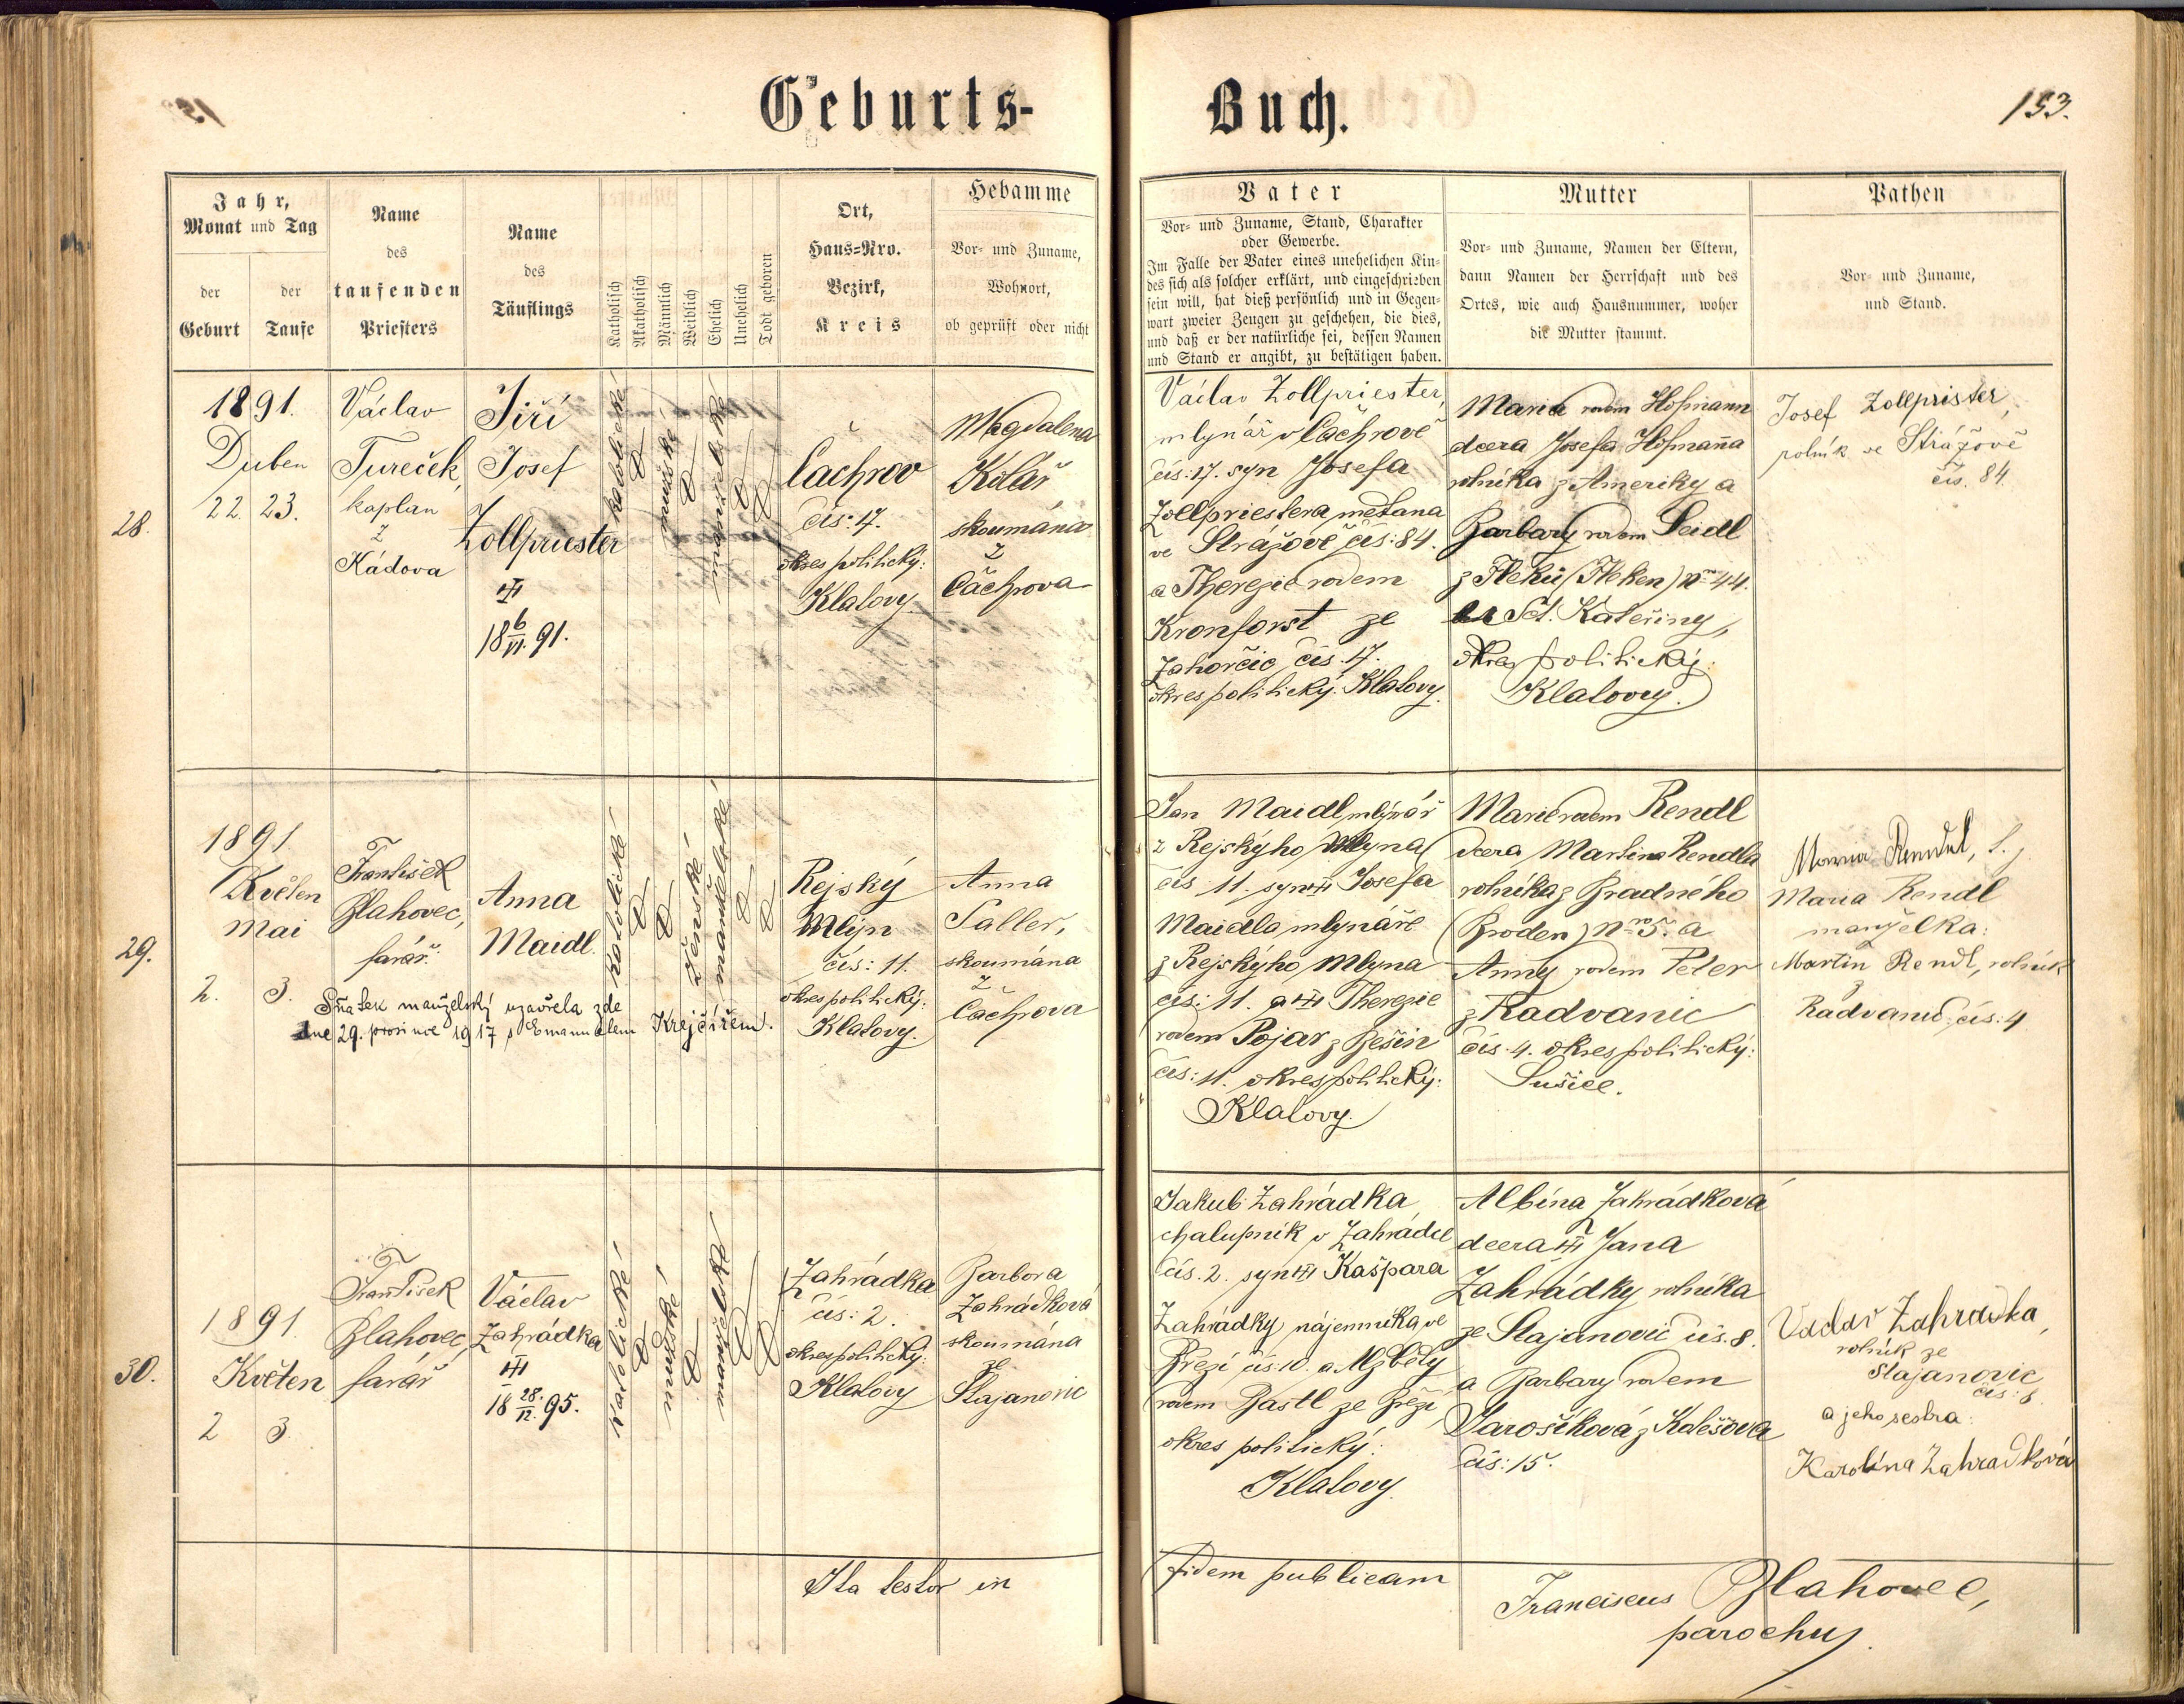 Geburts-
Buch.
153.
Jahr,
Monat und Tag
der
Geburt
der
Taufe
Name
des
taufenden
Priesters
Name
des
Täuflings
Katholisch
Akatholisch
Männlich
Weiblich
Ehelich
Unehelich
Todt geboren
Ort,
Haus-Nro.
Bezirk,
Kreis
Hebamme
Vor- und Zuname,
Wohnort,
ob geprüft oder nicht
Vater
Vor- und Zuname, Stand, Charakter
oder Gewerbe.
Im Falle der Vater eines unehelichen Kin-
des sich als solcher erklärt, und eingeschrieben
sein will, hat dieß persönlich und in Gegen-
wart zweier Zeugen zu geschehen, die dies,
und daß er der natürliche sei, dessen Namen
und Stand er angibt, zu bestätigen haben.
Mutter
Vor- und Zuname, Namen der Eltern,
dann Namen der Herrschaft und des
Ortes, wie auch Hausnummer, woher
die Mutter stammt.
Pathen
Vor- und Zuname,
und Stand.
28.
1891.
Duben
22. 23.
Václav
Tureček,
kaplan
z
Kádova
Jiří
Josef
Zollpriester
18 6/VI. 91.
katolické
mužské
manželské
Čachrov
čís: 17.
okres politický:
Klatovy.
Magdalena
Kolář
skoumána
z
Čachrova
Václav Zollpriester,
mlynář v Čachrově
čís: 17. syn Josefa
Zollpriestera, měšťana
ve Strážově čís: 84.
a Therezie rodem
Kronforst ze
Zahorčic čís. 17.
okres politický: Klatovy.
Marie rodem Hofmann
dcera Josefa Hofmanna
rolníka z Ameriky a
Barbary rodem Seidl
z Fleků (Fleken) Nro 44.
Sct. Kateřiny,
okres politický:
Klatovy.
Josef Zollprister,
rolník ve Strážově
čís. 84
29.
1891
Květen
Mai
2. 3.
František
Blahovec,
farář.
Anna
Maidl.
Sňatek manželský uzavřela zde
dne 29. prosince 1917 s Emanuelem Krejčířem.
katolické
ženské
manželské
Rejský
Mlýn
čís: 11.
okres politický:
Klatovy.
Anna
Saller,
skoumána
z
Čachrova
Jan Maidl, mlynář
z Rejskýho Mlyna
čís 11. syn Josefa
Maidla mlynáře
z Rejskýho Mlyna
čís: 11. a Therezie
rodem Pojar z Bešin
čís: 11. okres politický:
Klatovy.
Marie rodem Rendl
dcera Martina Rendla
rolníka z Bradného
(Broden) Nro 5. a
Anny rodem Peter
z Radvanic
čís. 4. okres politický:
Sušice.
Maria Rendl
manželka:
Martin Rendl, rolník
Radvanic, čís: 4
30.
1891.
Květen
2 3
František
Blahovec,
farář
Václav
Zahrádka
18 28./12. 95.
katolické
mužské
manželské
Zahrádka
čís: 2.
okres politický:
Klatovy
Barbora
Zahrádková
skoumána
ze
Stajanovic
Jakub Zahrádka,
chalupník v Zahrádce
čís. 2. syn Kašpara
Zahrádky, nájemníka ve
Březí čís: 10. a Alžběty
rodem Bastl ze Březí
okres politický:
Klatovy.
Albína Zahrádková
dcera Jana
Zahrádky rolníka
ze Stajanovic čís. 8.
a Barbary rodem
Jarošíková z Kolešova
čís: 15.
Václav Zahradka,
rolník ze
Stajanovic
čís: 8
a jeho sestra:
Karolína Zahradková
Ita testor in
fidem publicam
Franciscus Blahovec,
parochus.